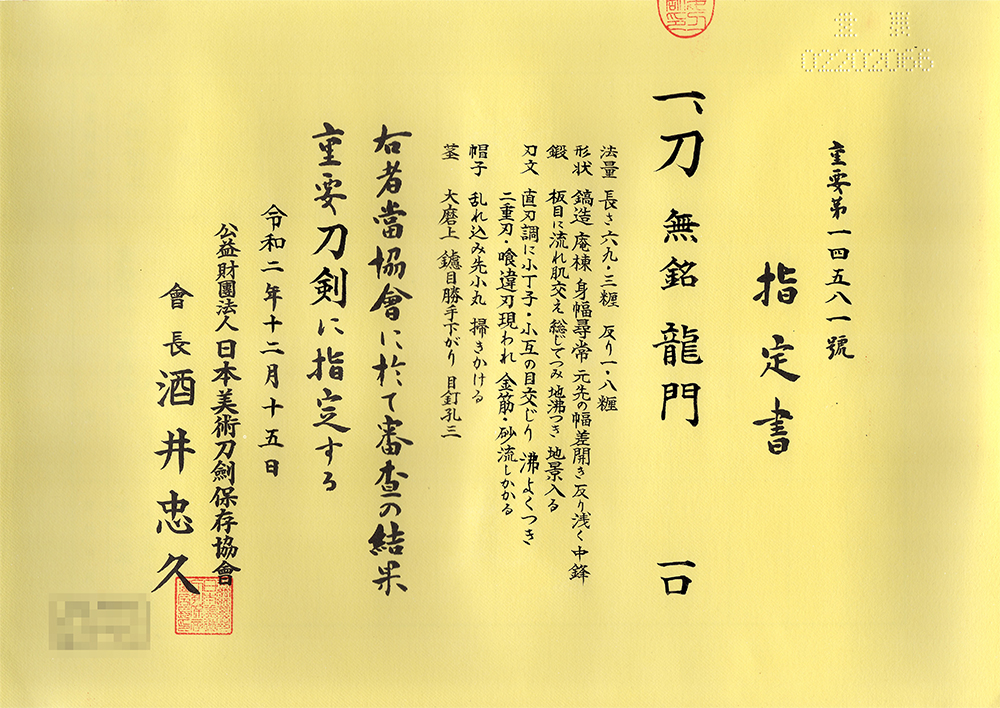 重要第一四五八一號
指定書
一、刀 無銘 龍門 一口
法量 長さ六九・三糎 反り一・八糎
形状 鎬造 庵棟 身幅尋常 元先の幅差開き 反り浅く 中鋒
鍛 板目に流れ肌交え 総じてつみ 地沸つき 地景入る
刃文 直刃調に小丁子・小互の目交じり 沸よくつき
二重刃・喰違刃現われ 金筋・砂流しかかる
帽子 乱れ込み先小丸 掃きかける
茎 大磨上 鑢目勝手下がり 目釘孔三
右者當協會に於て審査の結果
重要刀剣に指定する
令和二年十二月十五日
公益財團法人日本美術刀劍保存協會
會長 酒井忠久
02202066